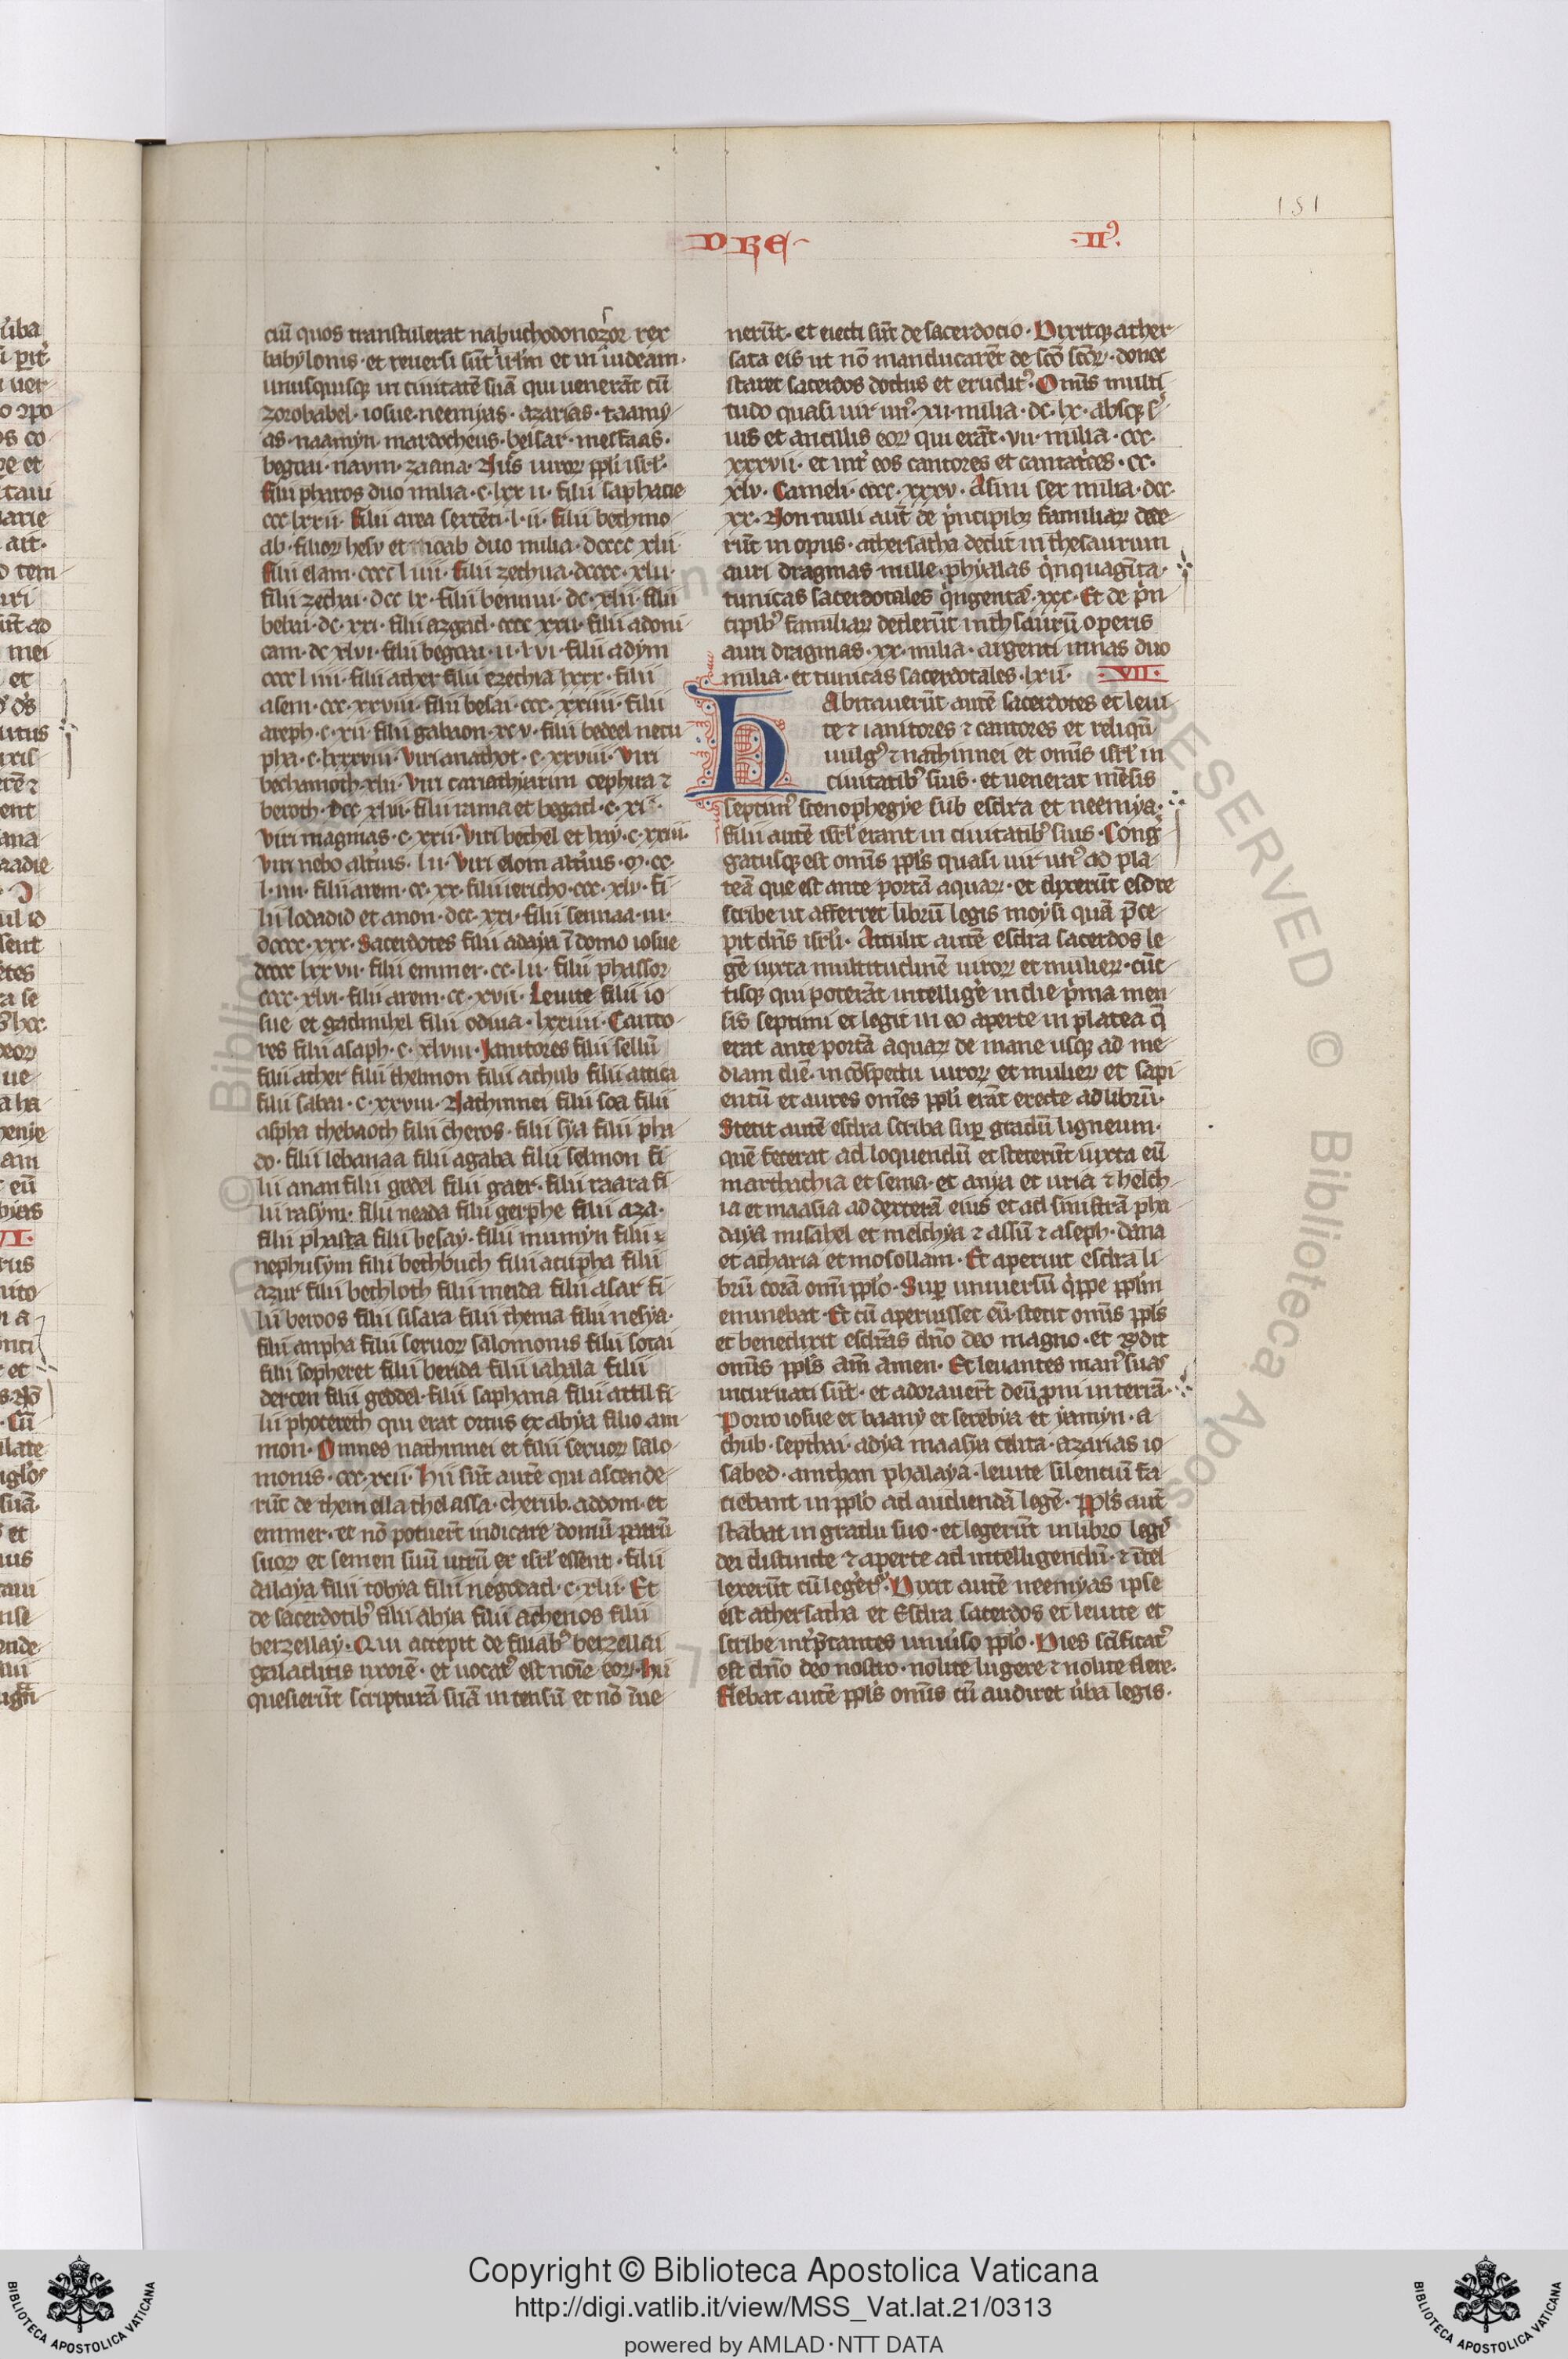 151
DRE
·II⁹·
ciū quos transtulerat nabuchodonozor rex
babylonis · et reuersi sūt irl̄m et in iudeam ·
unusquisqꝫ in ciuitatē suā qui uenerāt cū
zorobabel · iosue · neemyas · azarias · raamy
as · naamyn · mardocheus · belsar · mesfaas ·
begoai · naum · zaana · Nūs uiroꝝ ppl̓i isrl̓ ·
filii pharos duo milia · c · lxx ii · filii saphacie
ccc lxx ii · filii area sexcēti · l · ii · filii bethmo
ab · filioꝝ hesu et moab duo milia · dcccc xlii
filii elam · cccc l iiii · filii zechua · dcccc · xlu ·
filii zechai · dcc lx · filii bennui · dc · xlii · filii
belxai · dc · xxi · filii azgad · cccc xxii · filii adoni
cam · dc xlvi · filii begoai · ii · l vi · filii adym
cccc l iiii · filii ather filii ezechia lxxx · filii
asem · ccc · xxviii · filii besai · ccc · xxiiii · filii
areph · c · xii · filii gabaon · xc v · filii bedeel netu
pha · c · lxxxviii · viri anathot · c · xxviii · viri
bechamoth · xlii · viri cariathiarim cephua ⁊
beroth · dcc · xlvi · filii rama et begad · c · xi ·
viri magmas · c · xxii · viri bethel et hay · c · xxiii ·
viri nebo alt̓ius · lii · viri elom alt̓ius · ꝏ · cc ·
l · iiii · filii arem · cc · xx · filii iericho · ccc · xlv · fi
lii lodadid et anon · dcc · xxi · filii sennaa · iii ·
dcccc · xxx · Sacerdotes filii adaya ī domo iosue
dcccc lxx vii · filii emmer · cc · lii · filii phassor
cccc · xlvi · filii arem · cc · xvii · Leuite filii io
sue et gadmihel filii odiua · lxxiiii · Canto
res filii asaph · c · xlviii · Ianitores filii sellū
filii ather filii thelmon filii achub filii attica
filii sabai · c · xxviii · Nathinnei filii soa filii
aspha thebaoth filii cheros · filii sya filii pha
do · filii lebanaa filii agaba filii selmon fi
lii anan filii gedel filii gaer · filii raara fi
lii rasym · filii neada filii gerphe filii aza ·
filii phasta filii besay · filii mumyn filii
nephusym filii bethbuch filii acupha filii
azur filii bethloth filii meida filii asar fi
lii beroos filii sisara filii thema filii nesya ·
filii anpha filii seruoꝝ salomonis filii sotai
filii sopheret filii berida filii iahala filii
dercen filii geddel · filii saphana filii attil fi
lii photereth qui erat ortus ex abya filio am
mon · Omnes nathinnei et filii seruoꝝ salo
monis · ccc · xcii · Hii sūt autē qui ascende
rūt de them ella thel assa · cherub · addom · et
emmer · et nō potuerīt indicare domū patrū
suoꝝ et semen suū utrū ex isrl̓ essent · filii
dalaya filii tobya filii negotad · c · xlii · Et
de sacerdotibꝰ filii abya filii achenos filii
berzellay · Qui accepit de filiabꝰ berzellai
galaditis uxorē · et uocatꝰ est noīe eoꝝ · hii
quesierūt scripturā suā in tensū et nō īue
nerūt · et eiecti sūt de sacerdocio · Dixitqꝫ ather
sata eis ut nō manducarēt de scō scōꝝ · donec
staret sacerdos doctus et erudit⁹ · Omīs multi
tudo quasi uir un⁹ · xlii · milia · dc · lx · absqꝫ s̓
uis et ancillis eoꝝ qui erāt · vii · milia · ccc ·
xxxvii · et int̓ eos cantores et cantat̓ces · cc ·
xlv · Cameli · cccc · xxxv · Asini sex milia · dcc ·
xx · Non nulli aūt de p̓ncipibꝫ familiaꝝ dede
rūt in opus · athersatha dedit in thesaurum
auri dragmas mille · phyalas q̓nquagīta ·
tunicas sacerdotales q̓ngentā · xxx · Et de p̓n
cipib⁹ familiaꝝ dederūt in thsaurū operis
auri dragmas · xx · milia · argenti mnas duo
milia · et tunicas sacerdotales · lxii · ·VII·
hAbitauerūt autē sacerdotes et leui
te ⁊ ianitores ⁊ cantores et reliqū
uulg⁹ ⁊ nathinnei et omīs isrl̓ in
ciuitatib⁹ suis · et uenerat mēsis
septim⁹ scenophegye sub esdra et neemya ·
filii autē isrl̓ erant in ciuitatib⁹ suis · Cong̓
gatusqꝫ est omīs ppl̓s quasi uir un⁹ ad pla
teā que est ante portā aquaꝝ · et dixerūt esdre
scribe ut afferret librū legis moysi quā p̄ce
pit dn̄s isrl̓i · Attulit autē esdra sacerdos le
gē iuxta multitudinē uiroꝝ et mulieꝝ · cūc
tisqꝫ qui poterāt intellig̓e in die p̓ma men
sis septimi et legit in eo aperte in platea q̄
erat ante portā aquaꝝ de mane usqꝫ ad me
diam diē · in cōspectu uiroꝝ et mulieꝝ et sapi
entū et aures omēs ppl̓i erāt erecte ad librū ·
Stetit autē esdra scriba suꝑ gradū ligneum ·
quē fecerat ad loquendū et steterūt iuxta eū
mathathia et sema · et anya et uria ⁊ helch
ia et maasia ad dexterā eius et ad sinistrā pha
daya misahel et melchya ⁊ assū ⁊ aseph · dana
et acharia et mosollam · Et aperuit esdra li
brū corā omī ppl̓o · Suꝑ uniuersū q̓ppe ppl̓m
eminebat · Et cū aperuisset eū · stetit omīs ppl̓s
et benedixit esdras dn̄o deo magno · et rn̄dit
omīs ppl̓s am̄ amen · Et leuantes man⁹ suas
incuruati sūt · et adorauerūt deū ꝓni in terrā ·
Porro iosue et baany et serebya et yamyn · a
chub · septhai · adya maasya celita · azarias io
sabed · amthan phalaya · leuite silentiū fa
ciebant in ppl̓o ad audiendā legē · Ppl̓s aūt
stabat in gradu suo · et legerūt in libro legē
dei distincte ⁊ aperte ad intelligendū · ⁊ ītel
lexerūt cū leg̓et⁹ · Dixit autē neemyas ipse
est athersatha et Esdra sacerdos et leuite et
scribe int̓p̄tantes uniu̓so ppl̓o · Dies sc̄ificat⁹
est dn̄o deo nostro · nolite lugere ⁊ nolite flere ·
Flebat autē ppl̓s omīs cū audiret u̓ba legis ·
Copyright © Biblioteca Apostolica Vaticana
http://digi.vatlib.it/view/MSS_Vat.lat.21/0313
powered by AMLAD·NTT DATA